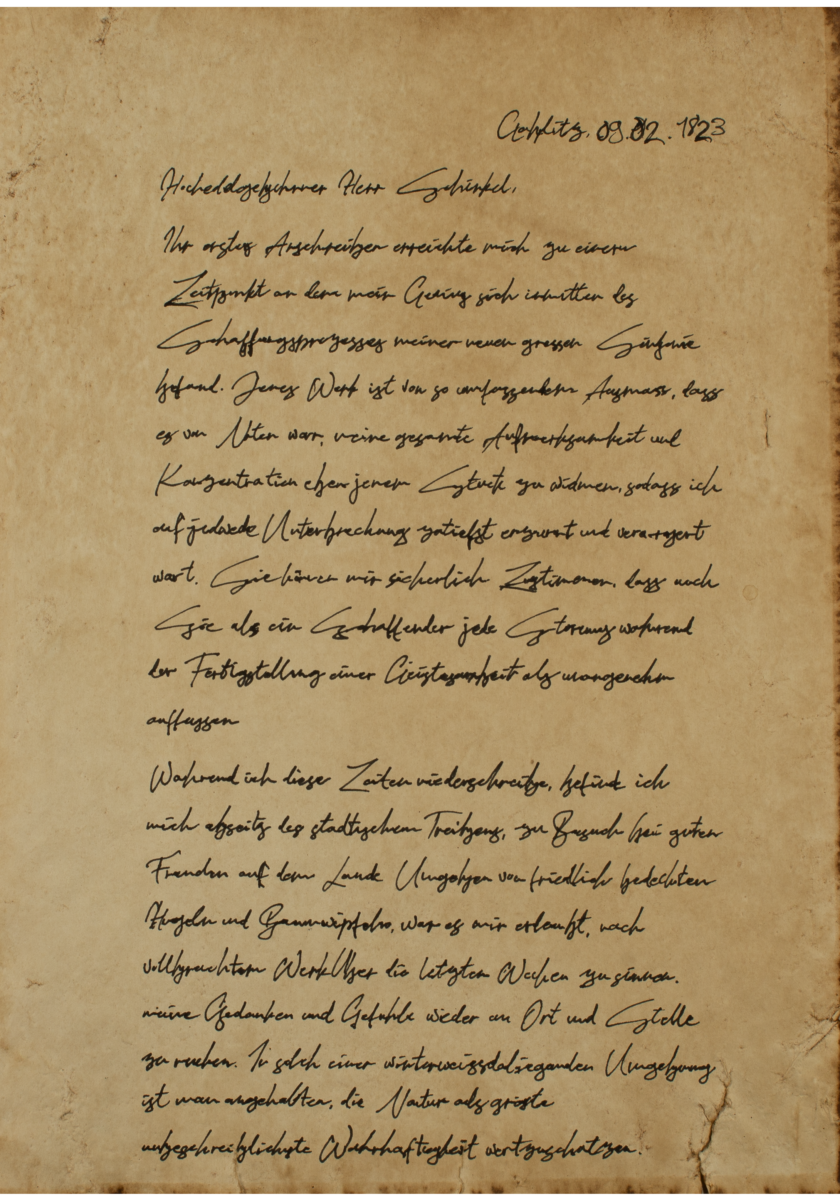 09.02.1823
Herr Schinkel,
Ihr erstes Anschreiben erreichte mich zu einem
Zeitpunkt an dem mein Genius sich inmitten des
Schaffungsprozesses meiner neuen grossen Sinfonie
befand. Jenes Werk ist von so umfassendem Ausmass, dass
es von Noten war, meine gesamte Aufmerksamkeit und
Konzentration eben jenem Stuck zu widmen, sodass ich
auf jedwede Unterbrechung zutiefst erzurnt und verargert
wart. Sie konnen mir sicherlich Zustimmen, dass auch
Sie als ein Schaffender jede Storung wahrend
der Fertigstellung einer Geistesarbeit als unangenehm
auffassen
Wahrend ich diese Zeilen niederschreibe, befinde ich
mich abseits des stadtischem Treibens, zu Besuch bei guten
Freunden auf dem Lande Umgeben von friedlich bedeckten
Hugeln und Baumwipfeln, war es mir erlaubt, nach
vollbrachtem Werk Uber die letzten Wochen zu sinnen.
meine Gedanken und Gefuhle wieder an Ort und Stelle
zu rucken. In solch einer winterweissdaliegenden Umgebung
ist man angehalten, die Natur als grosste
unbeschreiblichste Wahrhaftigkeit wertzuschatzen.